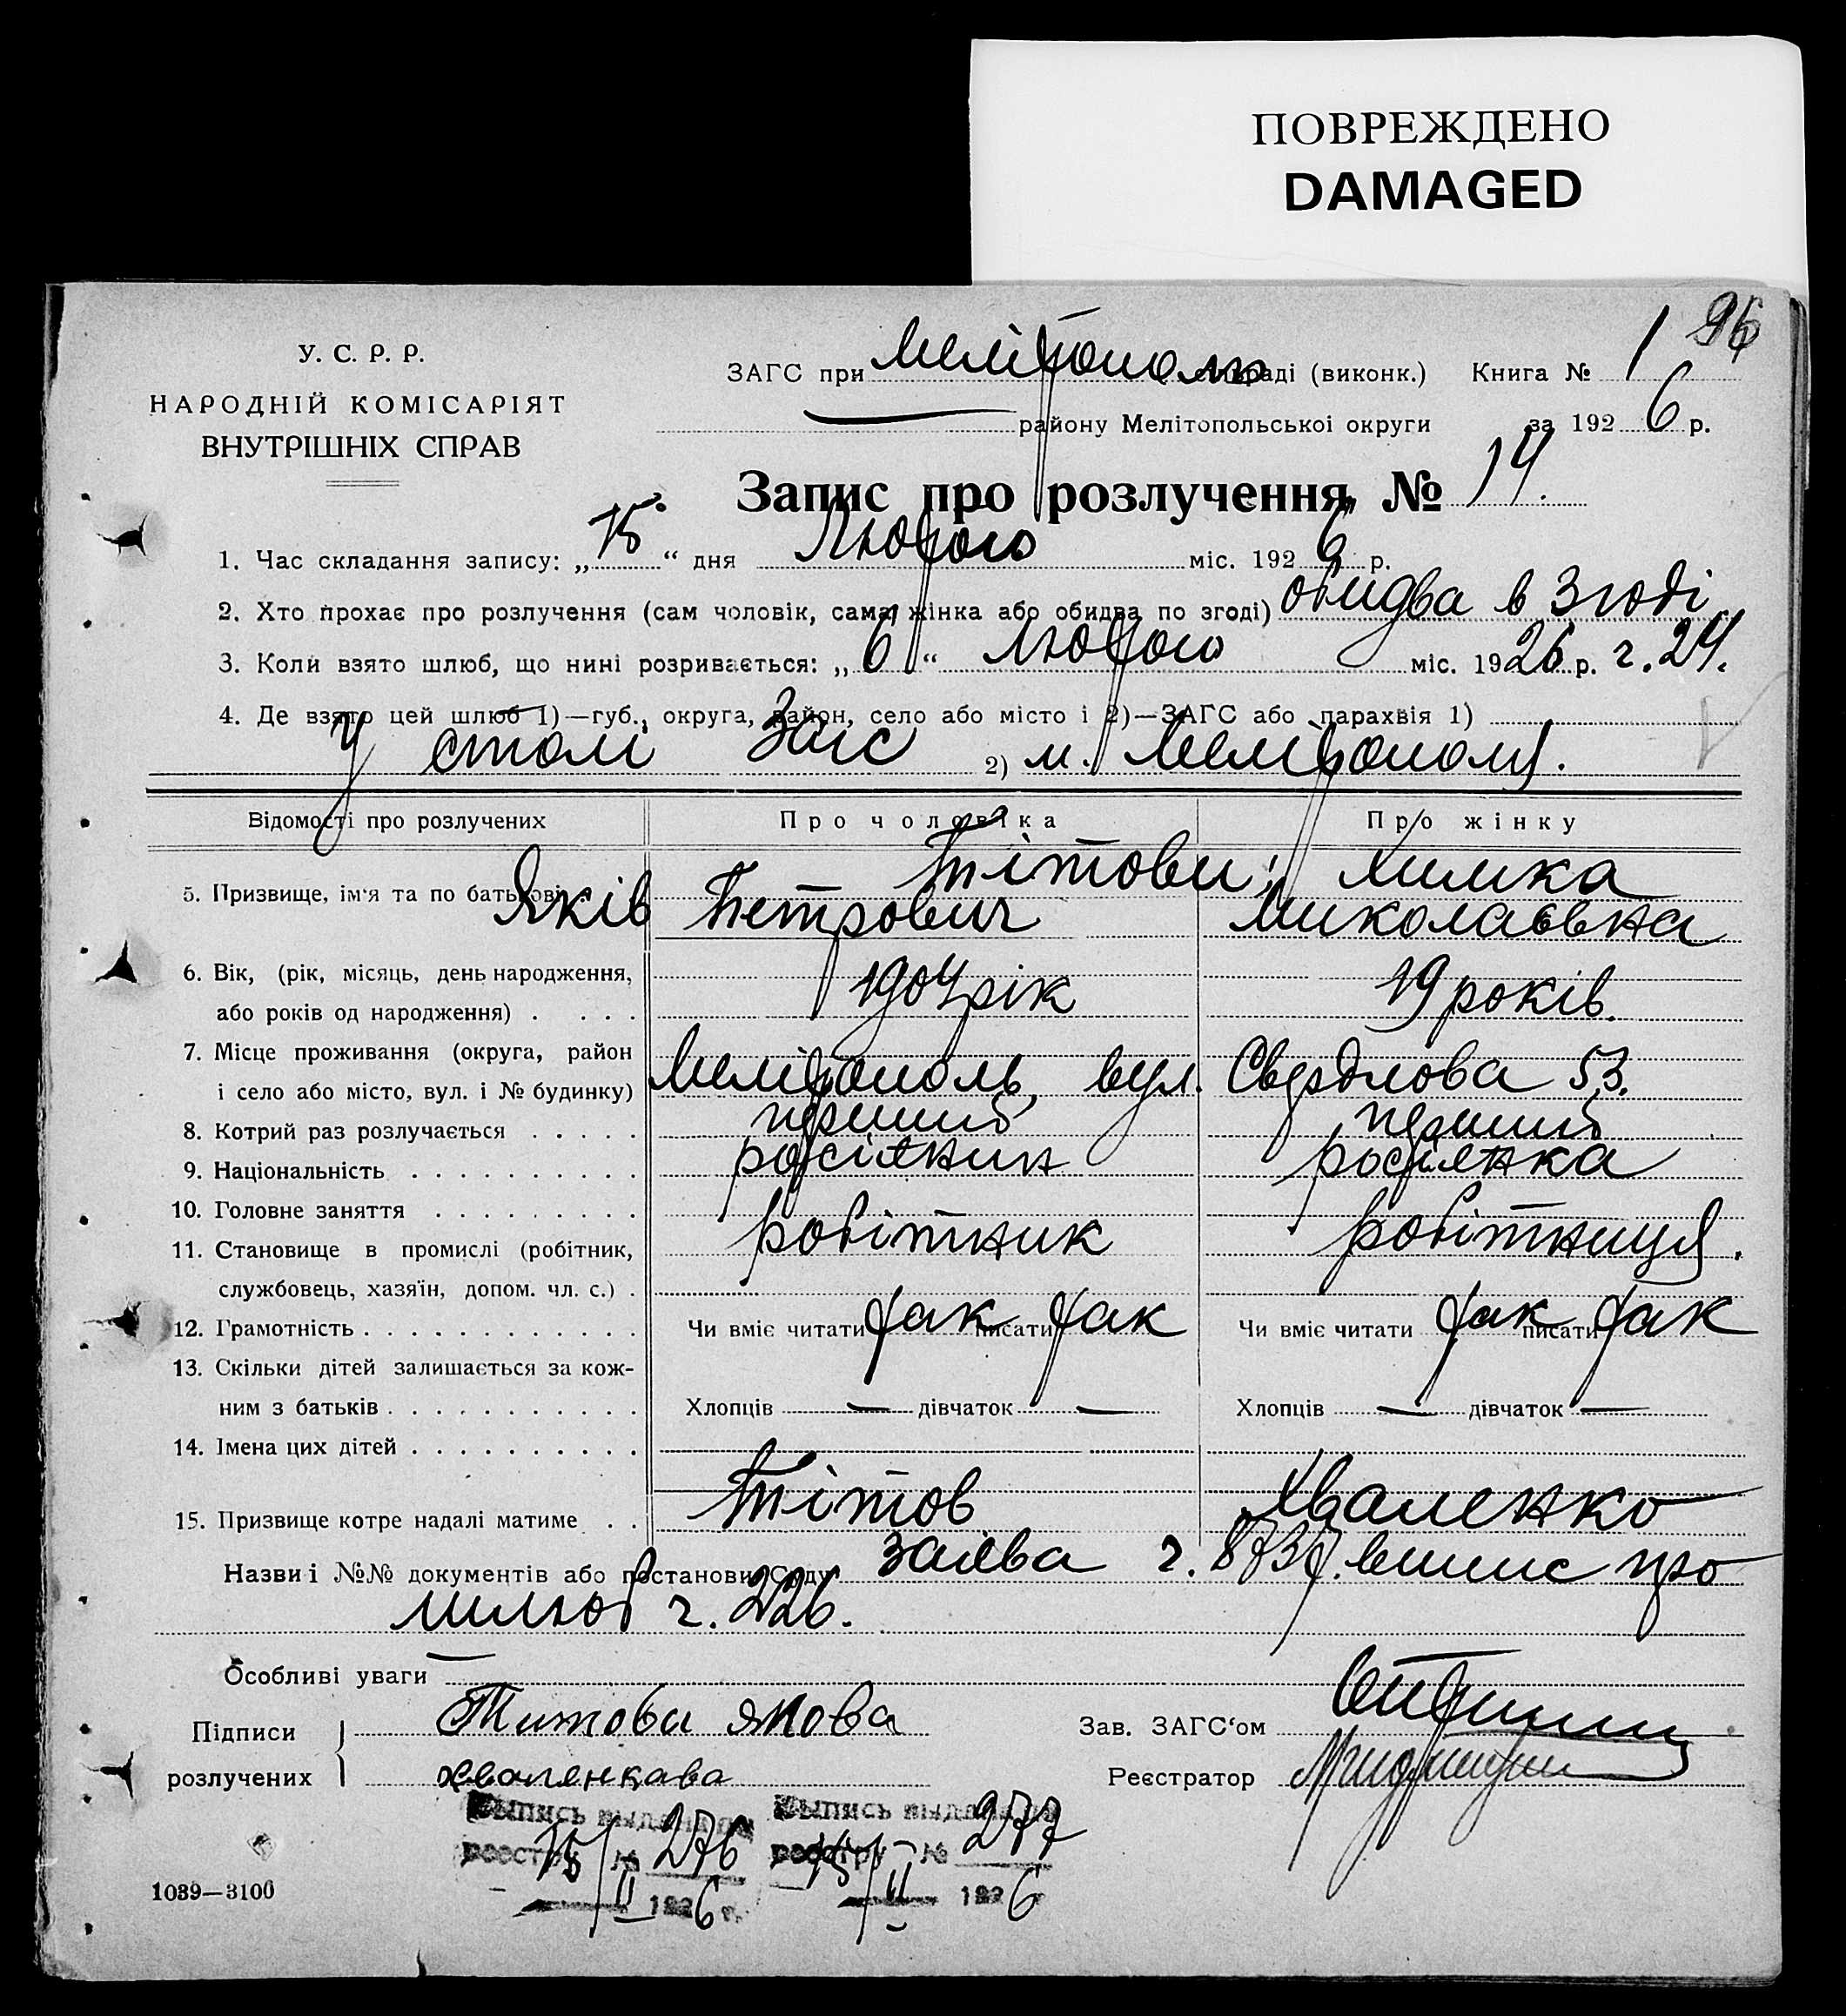 ПОВРЕЖДЕНО
DAMAGED
96
У. С. Р. Р.
НАРОДНІЙ КОМІСАРІЯТ
ВНУТРІШНІХ СПРАВ
ЗАГС при Мелітополь раді (виконк.) Книга № 1
району Мелітопольської округи за 1926 р.
Запис про розлучення № 14.
1. Час складання запису: „15“ дня Лютого міс. 1926 р.
2. Хто прохає про розлучення (сам чоловік, сама жінка або обидва по згоді) обидва в згоді
3. Коли взято шлюб, що нині розривається: „6“ Лютого міс. 1926 р. г. 24.
4. Де взято цей шлюб 1)—губ., округа, район, село або місто і 2)—ЗАГС або парахвія 1)
У столі Загс 2) м. Мелітополя.
Відомості про розлучених Про чоловіка Про жінку
5. Призвище, ім'я та по батькові Тітови; Химка
Яків Петрович Миколаєвна
6. Вік, (рік, місяць, день народження,
або років од народження) . . . . 1904 рік 19 років.
7. Місце проживання (округа, район
і село або місто, вул. і № будинку) Мелітополь, вул. Свердлова 53.
8. Котрий раз розлучається . . . . . перший перший
9. Національність . . . . . . . . . . росіянин росіянка
10. Головне заняття . . . . . . . . .
11. Становище в промислі (робітник, робітник робітниця.
службовець, хазяїн, допом. чл. с.) .
12. Грамотність . . . . . . . . . . . . Чи вміє читати так писати так Чи вміє читати так писати так
13. Скільки дітей залишається за кож-
ним з батьків . . . . . . . . . . . Хлопців — дівчаток — Хлопців — дівчаток —
14. Імена цих дітей . . . . . . . . . .
15. Призвище котре надалі матиме . . Тітов Хваленко
Назви і №№ документів або постанови Суду заява г. 8737. випис про
шлюб г. 226.
Особливі уваги —
Підписи Титова якова Зав. ЗАГС'ом
розлучених хваленкава Реєстратор
Выпись выдана по Выпись выдана по
реестру № 276 реестру № 277
15/II 1926 г. 15/II 1926 г.
1039—3100